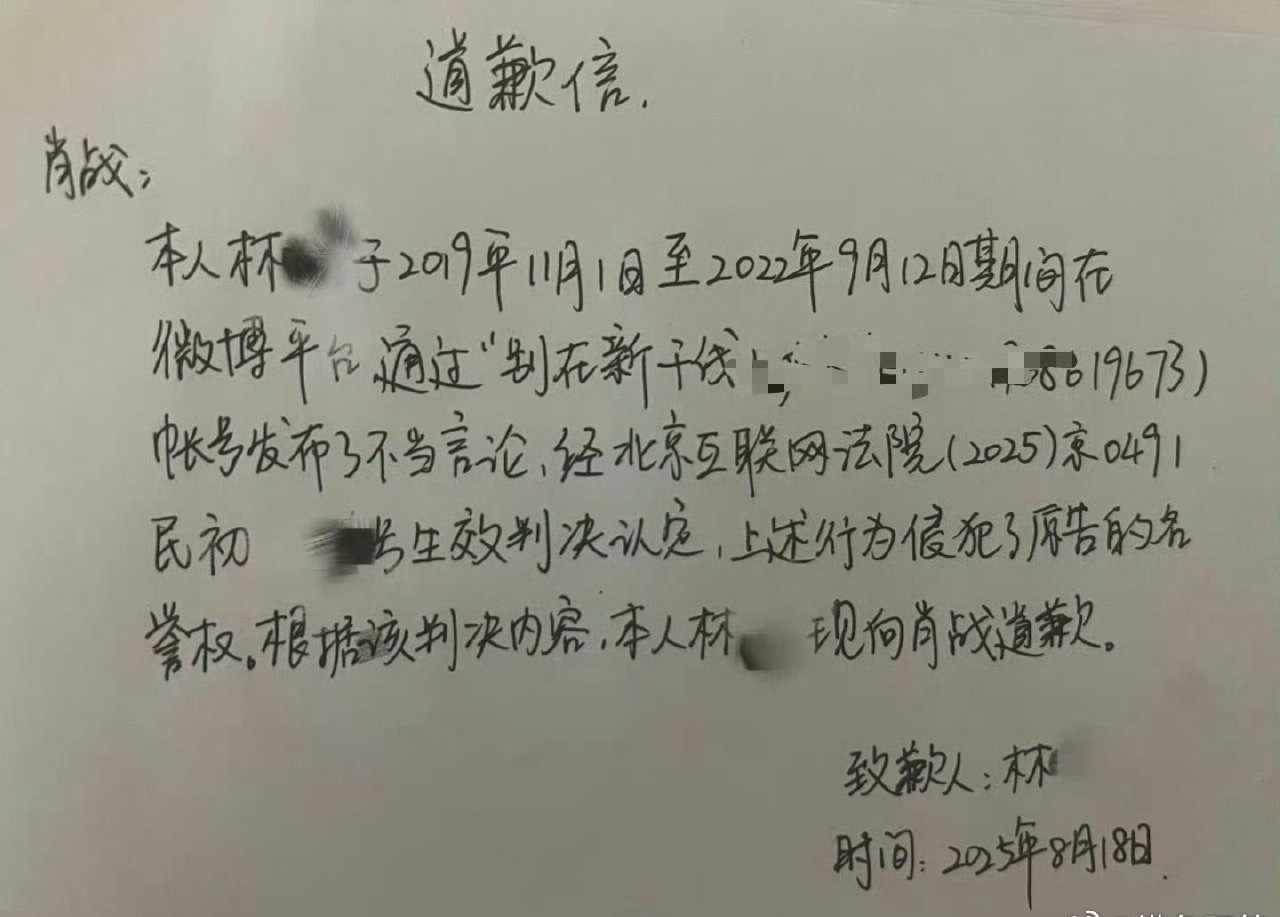 道歉信.
肖战：
本人林 于2019年11月1日至2022年9月12日期间在
微博平台通过“别在新干线 8619673）
帐号发布了不当言论，经北京互联网法院（2025）京0491
民初 号生效判决认定，上述行为侵犯了原告的名
誉权。根据该判决内容，本人林 现向肖战道歉。
致歉人：林
时间：2025年8月18日.